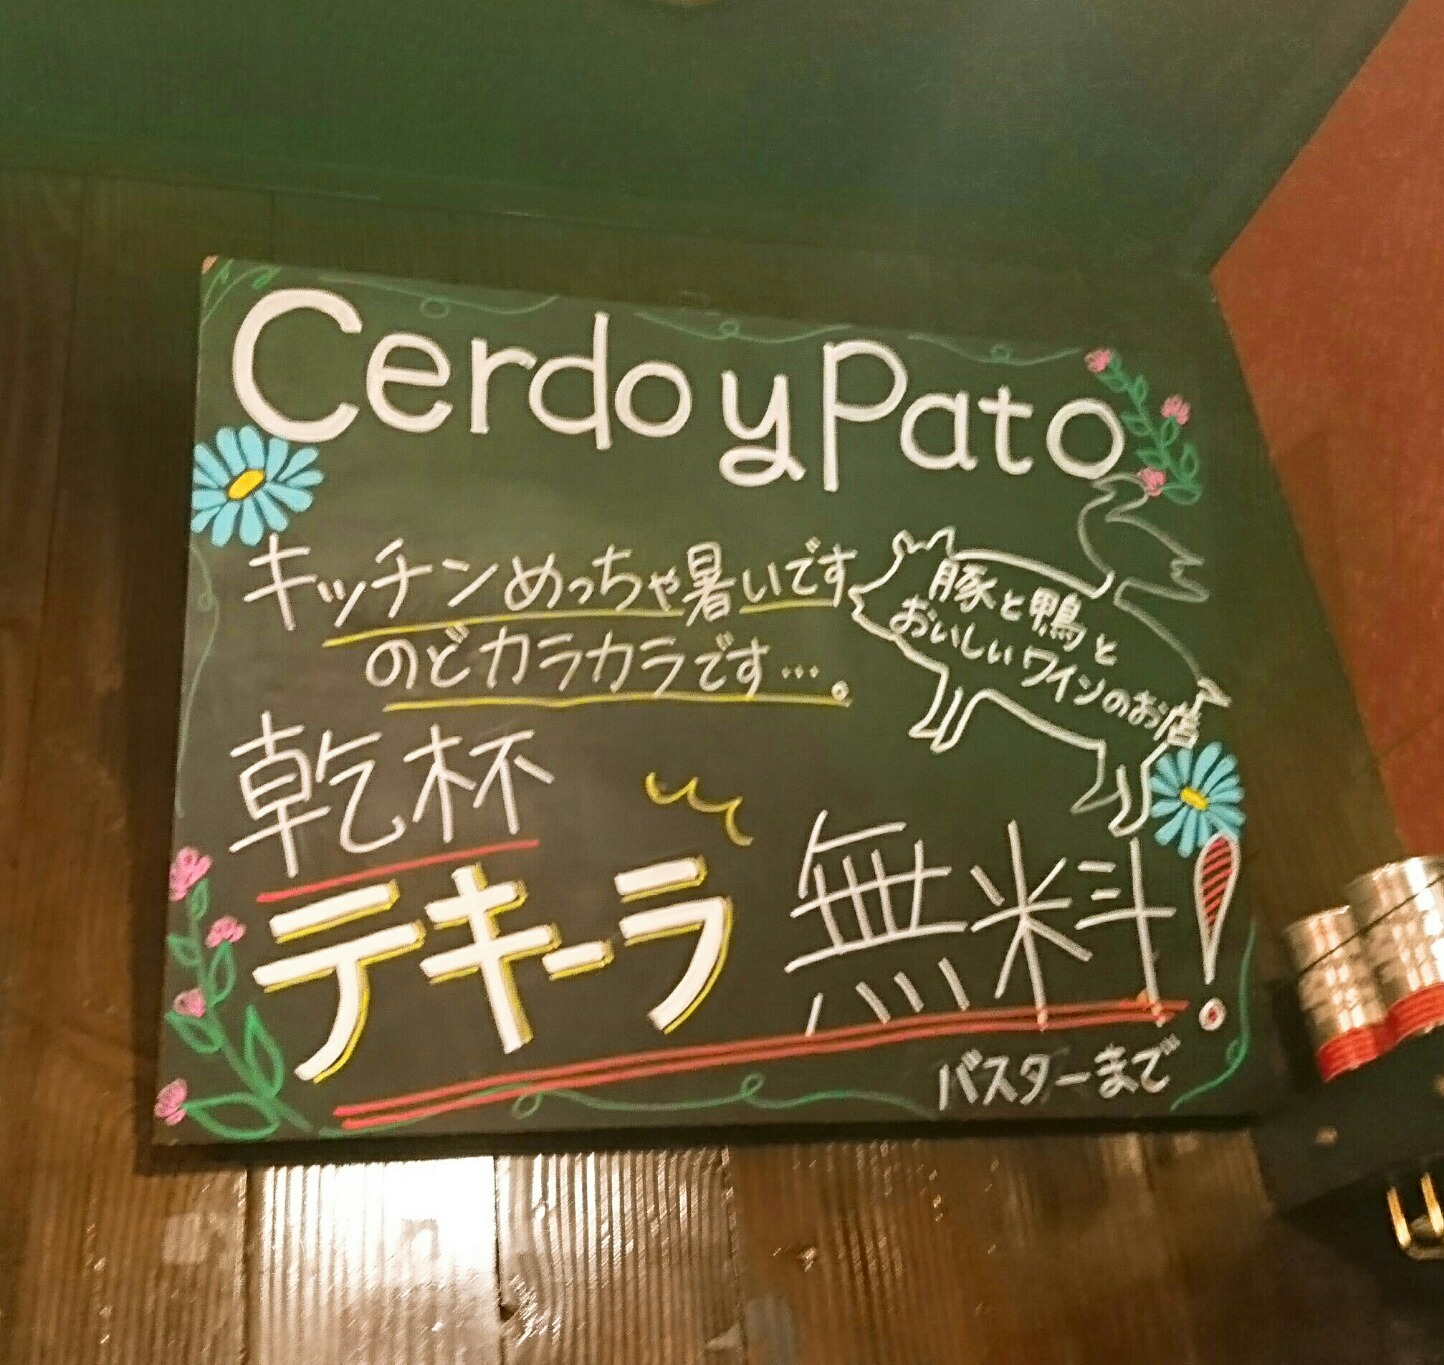 Cerdo y Pato
キッチンめっちゃ暑いです
のどカラカラです…。
豚と鴨と
おいしいワインのお店
乾杯
テキーラ 無料!
バスターまで